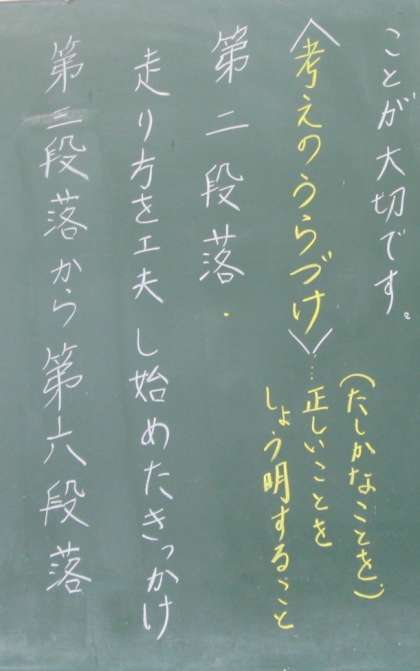 ことが大切です。
〈考えのうらづけ〉…
(たしかなことを、)
正しいことを
しょう明すること
第二段落
走り方を工夫し始めたきっかけ
第三段落から第六段落